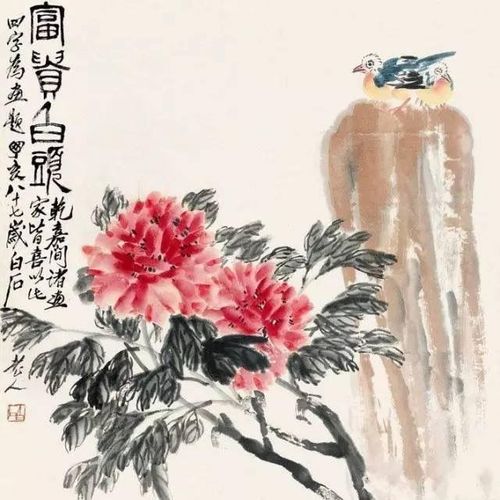 富貴白頭
乾嘉間諸畫
家皆喜以此
四字為畫題 亥八十七歲白石
老人